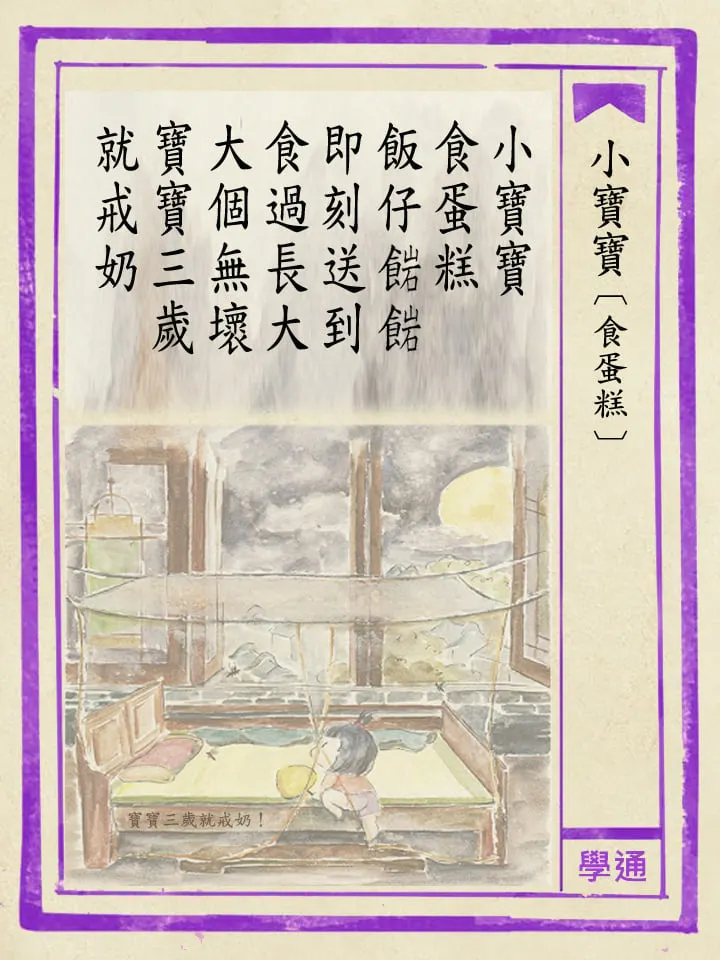 小寶寶〔食蛋糕〕
小寶寶
食蛋糕
飯仔
即刻送到
食過長大
大個無壞
寶寶三歲
就戒奶
寶寶三歲就戒奶！
學通